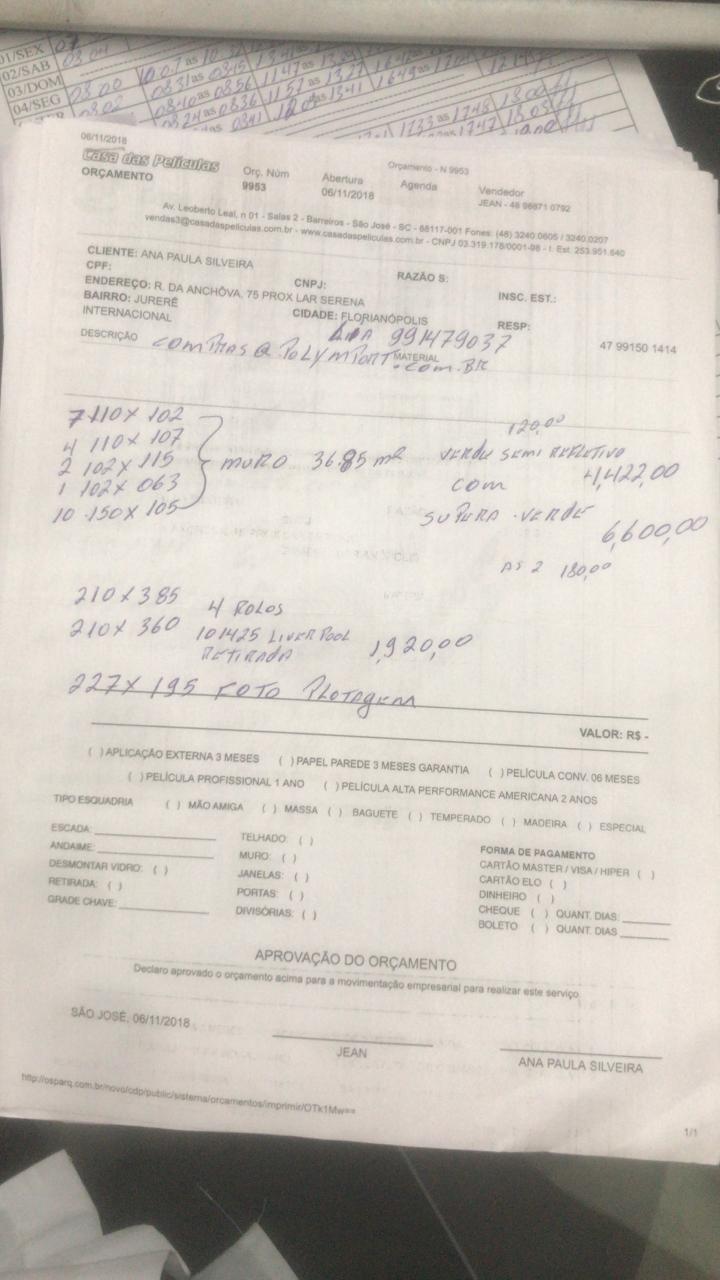 01/SEX 07
02/SAB 08 04
03/DOM
04/SEG 08:00
08:02
06/11/2018
Orçamento - N 9953
Casa das Películas
ORÇAMENTO
Orç. Núm
9953
Abertura
06/11/2018
Agenda
Vendedor
JEAN - 48 98871 0792
Av. Leoberto Leal, n 01 - Salas 2 - Barreiros - São José - SC - 88117-001 Fones: (48) 3240.0605 / 3240.0207
vendas3@casadaspeliculas.com.br - www.casadaspeliculas.com.br - CNPJ 03.319.178/0001-98 - I. Est. 253.951.640
CLIENTE: ANA PAULA SILVEIRA
CPF:
CNPJ:
RAZÃO S:
INSC. EST.:
ENDEREÇO: R. DA ANCHÔVA, 75 PROX LAR SERENA
BAIRRO: JURERÊ INTERNACIONAL
CIDADE: FLORIANÓPOLIS
RESP:
47 99150 1414
ANA 991479037
DESCRIÇÃO
MATERIAL
COMPRAS@POLYMPORT.COM.BR
7 110 X 102
4 110 X 107
2 102 X 115
1 102 X 063
10 150 X 105
MURO 36.85 m2
120,00
VERDE SEMI REFLETIVO
4,422,00
COM
SUPERA VERDE
6,600,00
AS 2 180,00
210 X 385
210 X 360
4 ROLOS
101425 LIVERPOOL
RETIRADA
1,920,00
227 X 195 FOTO PLOTAGEM
VALOR: R$ -
( ) APLICAÇÃO EXTERNA 3 MESES ( ) PAPEL PAREDE 3 MESES GARANTIA ( ) PELÍCULA CONV. 06 MESES
( ) PELÍCULA PROFISSIONAL 1 ANO ( ) PELÍCULA ALTA PERFORMANCE AMERICANA 2 ANOS
TIPO ESQUADRIA ( ) MÃO AMIGA ( ) MASSA ( ) BAGUETE ( ) TEMPERADO ( ) MADEIRA ( ) ESPECIAL
ESCADA:
ANDAIME:
DESMONTAR VIDRO: ( )
RETIRADA: ( )
GRADE CHAVE:
TELHADO: ( )
MURO: ( )
JANELAS: ( )
PORTAS: ( )
DIVISÓRIAS: ( )
FORMA DE PAGAMENTO
CARTÃO MASTER / VISA / HIPER ( )
CARTÃO ELO ( )
DINHEIRO ( )
CHEQUE ( ) QUANT. DIAS:
BOLETO ( ) QUANT. DIAS
APROVAÇÃO DO ORÇAMENTO
Declaro aprovado o orçamento acima para a movimentação empresarial para realizar este serviço
SÃO JOSÉ, 06/11/2018
JEAN
ANA PAULA SILVEIRA
http://osparq.com.br/novo/cdp/public/sistema/orcamentos/imprimir/OTk1Mw==
1/1